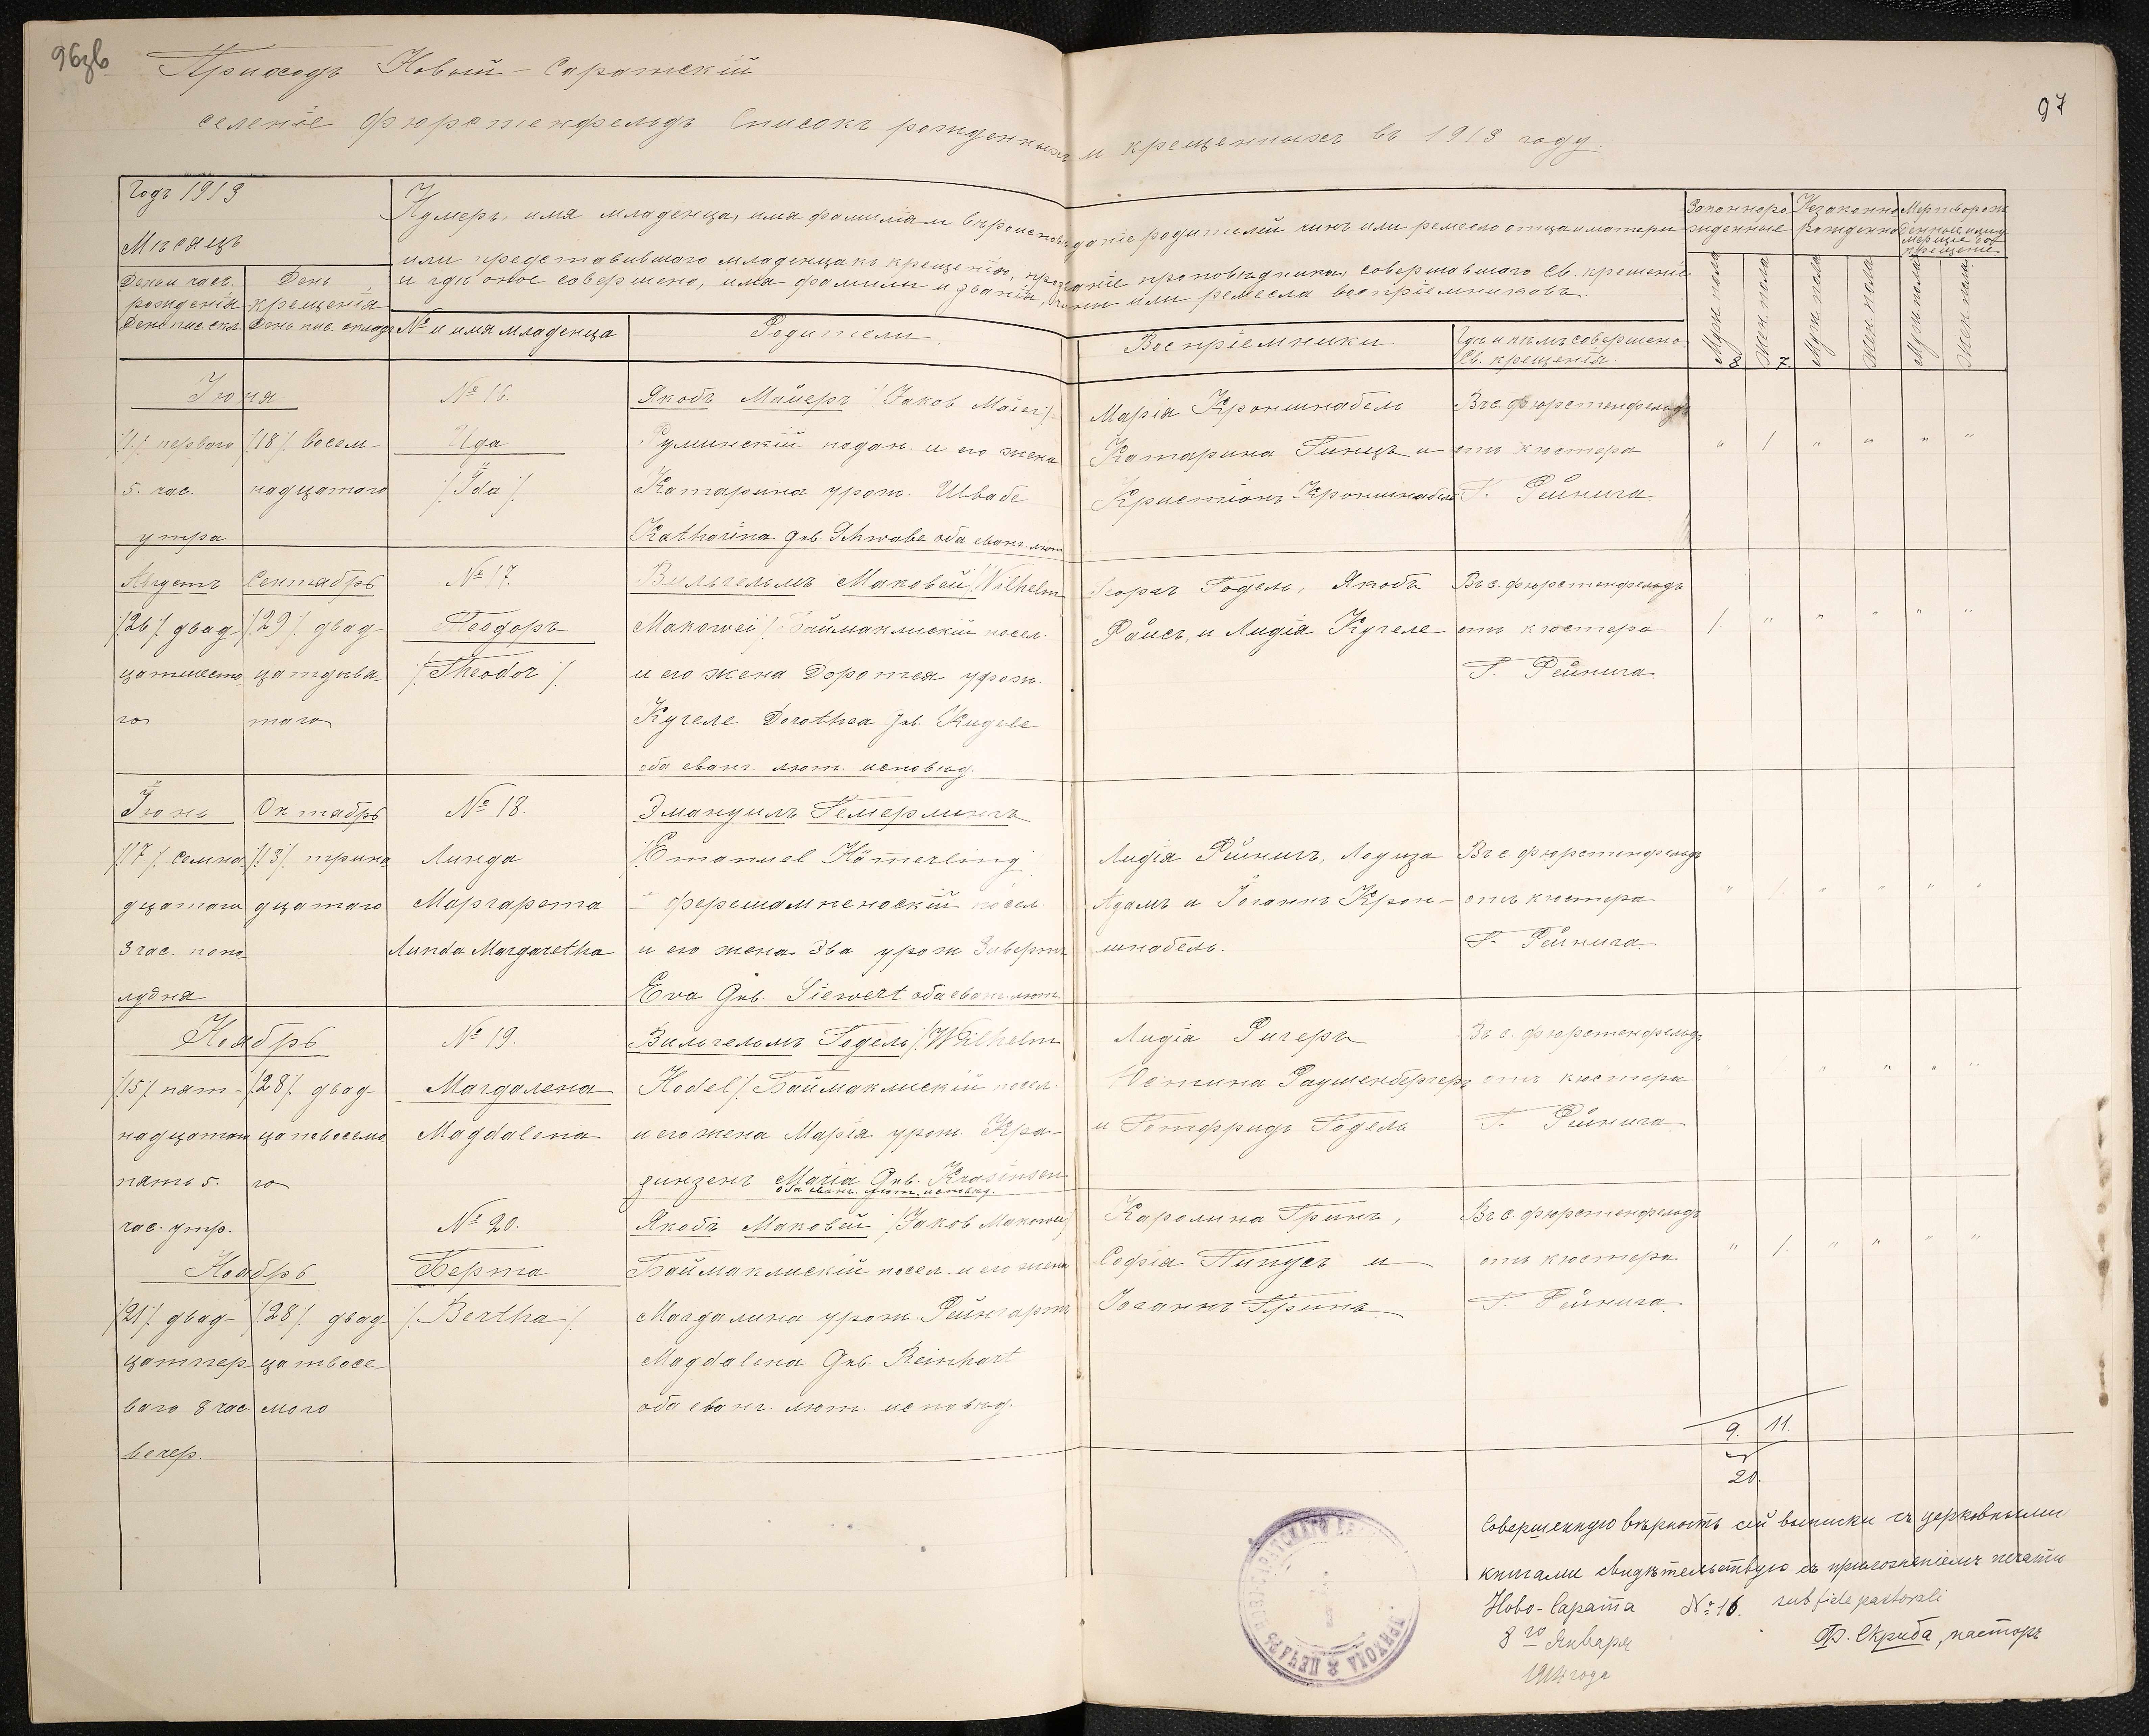 97
Приходъ Новый-Саратскій
селеніе Фюрстенфельдъ Списокъ рожденныхъ и крещенныхъ въ 1913 году.
Годъ 1913
Мѣсяцъ
День и час. рожденія
День крещенія
Нумеръ, имя младенца, имя фамилія и вѣроисповѣданіе родителей чинъ или ремесло отца и матери
или представившаго младенца къ крещенію, прозваніе проповѣдника, совершавшаго Св. крещеніе
и гдѣ оное совершено, имя фамиліи и званія, чины или ремесла воспріемниковъ.
№ и имя младенца
Родители.
Воспріемники.
Гдѣ и кѣмъ совершено
Св. крещенія.
Законноро
жденные
Незаконно
рожденно
Муж. пола
Жен. пола
Муж. пола
Жен. пола
Муж. пола
Жен. пола
8 7.
Іюня
/1./ перваго
5. час.
утра
/18/. Восем-
надцатаго
№ 16.
Ида
/ Ida /
Якобъ Майеръ / Jakob Maier /
Румынскій подан. и его жена
Катарина урож. Швабе
Katharina Geb. Schwabe оба еванг. лют
Марія Кроншнабель
Катарина Гинцъ и
Кристіанъ Кроншнабель
Въ с. Фюрстенфельдъ
отъ кюстера
Г. Рейнига.
" 1 " " " "
Августъ
/26/. двад-
цатшесто
го
Сентябрь
/29/. двад-
цатдѣвя-
таго
№ 17.
Теодоръ
/ Theodor /
Вильгельмъ Маковей / Wilhelm
Makowei / Баймаклискій посел.
и его жена Доротея урож.
Кугеле Dorothea Geb. Kugele
оба еванг. лют. исповѣд.
Георгъ Годель, Якобъ
Райсъ, и Лидія Кугеле
Въ с. Фюрстенфельдъ
отъ кюстера
Г. Рейнига.
1. " " " " "
Іюнь
/17/. семна
дцатаго
3 час. попо
лудня
Октябрь
/13/. трина
дцатаго
№ 18.
Линда
Маргарета
Linda Margaretha
Эмануилъ Гемерлингъ
/ Emanuel Hämerling
Ферешампеноскій посел.
и его жена Эва урож Зивертъ
Eva Geb. Siewert оба еванг. лют.
Лидія Рейнигъ, Ловиза
Адамъ и Іоганнъ Крон-
шнабель.
Въ с. Фюрстенфельдъ
отъ кюстера
Г. Рейнига.
" 1. " " " "
Ноябрь
/15/. пят-
надцатаго
пять 5.
час. утр.
/28/. двад-
цативосемо
го
№ 19.
Магдалена
Magdalena
Вильгельмъ Годель / Wilhelm
Hodel / Баймаклискій посел.
и его жена Марія урож. Кра-
зинзенъ Maria Geb. Krasinsen
оба еванг. лют. исповѣд.
Лидія Ригеръ
Юстина Раушенбергеръ
и Готфридъ Годель
Въ с. Фюрстенфельдъ
отъ кюстера
Г. Рейнига
Ноябрь
/21/. двад-
цатпер
ваго 8 час.
вечер.
/28/. двад
цатвосе-
мого
№ 20.
Берта
/ Bertha /
Якобъ Маковей / Jakob Makowei /
Баймаклискій посел. и его жена
Магдалина урож. Рейнгартъ
Magdalena Geb. Reinhart
оба еванг. лют. исповѣд.
Каролина Гринъ,
Софія Пипусъ и
Іоганнъ Гринъ.
Въ с. Фюрстенфельдъ
отъ кюстера
Г. Рейнига.
" 1. " " " "
9. 11.
20.
Совершенную вѣрность сей выписки съ церковными
книгами свидѣтельствую съ приложеніемъ печати
Ново-Сарата № 16. sub fide pastorali
8го Января
1914 года
Ф. Скриба, пасторъ
ПРИХОДА * ПЕЧАТЬ